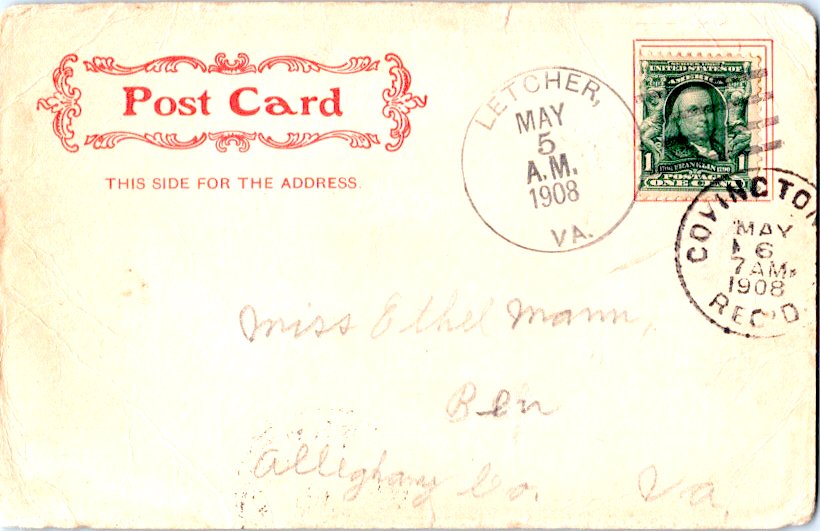 Post Card
THIS SIDE FOR THE ADDRESS.
LETCHER,
MAY
5
A.M.
1908
VA.
SERIES 1902
UNITED STATES OF
AMERICA
1 1706 FRANKLIN 1790 1
POSTAGE
ONE CENT
COVINGTON
MAY
6
7 AM.
1908
REC'D
Miss Ethel Mann,
Ben
Alleghany Co. Va.